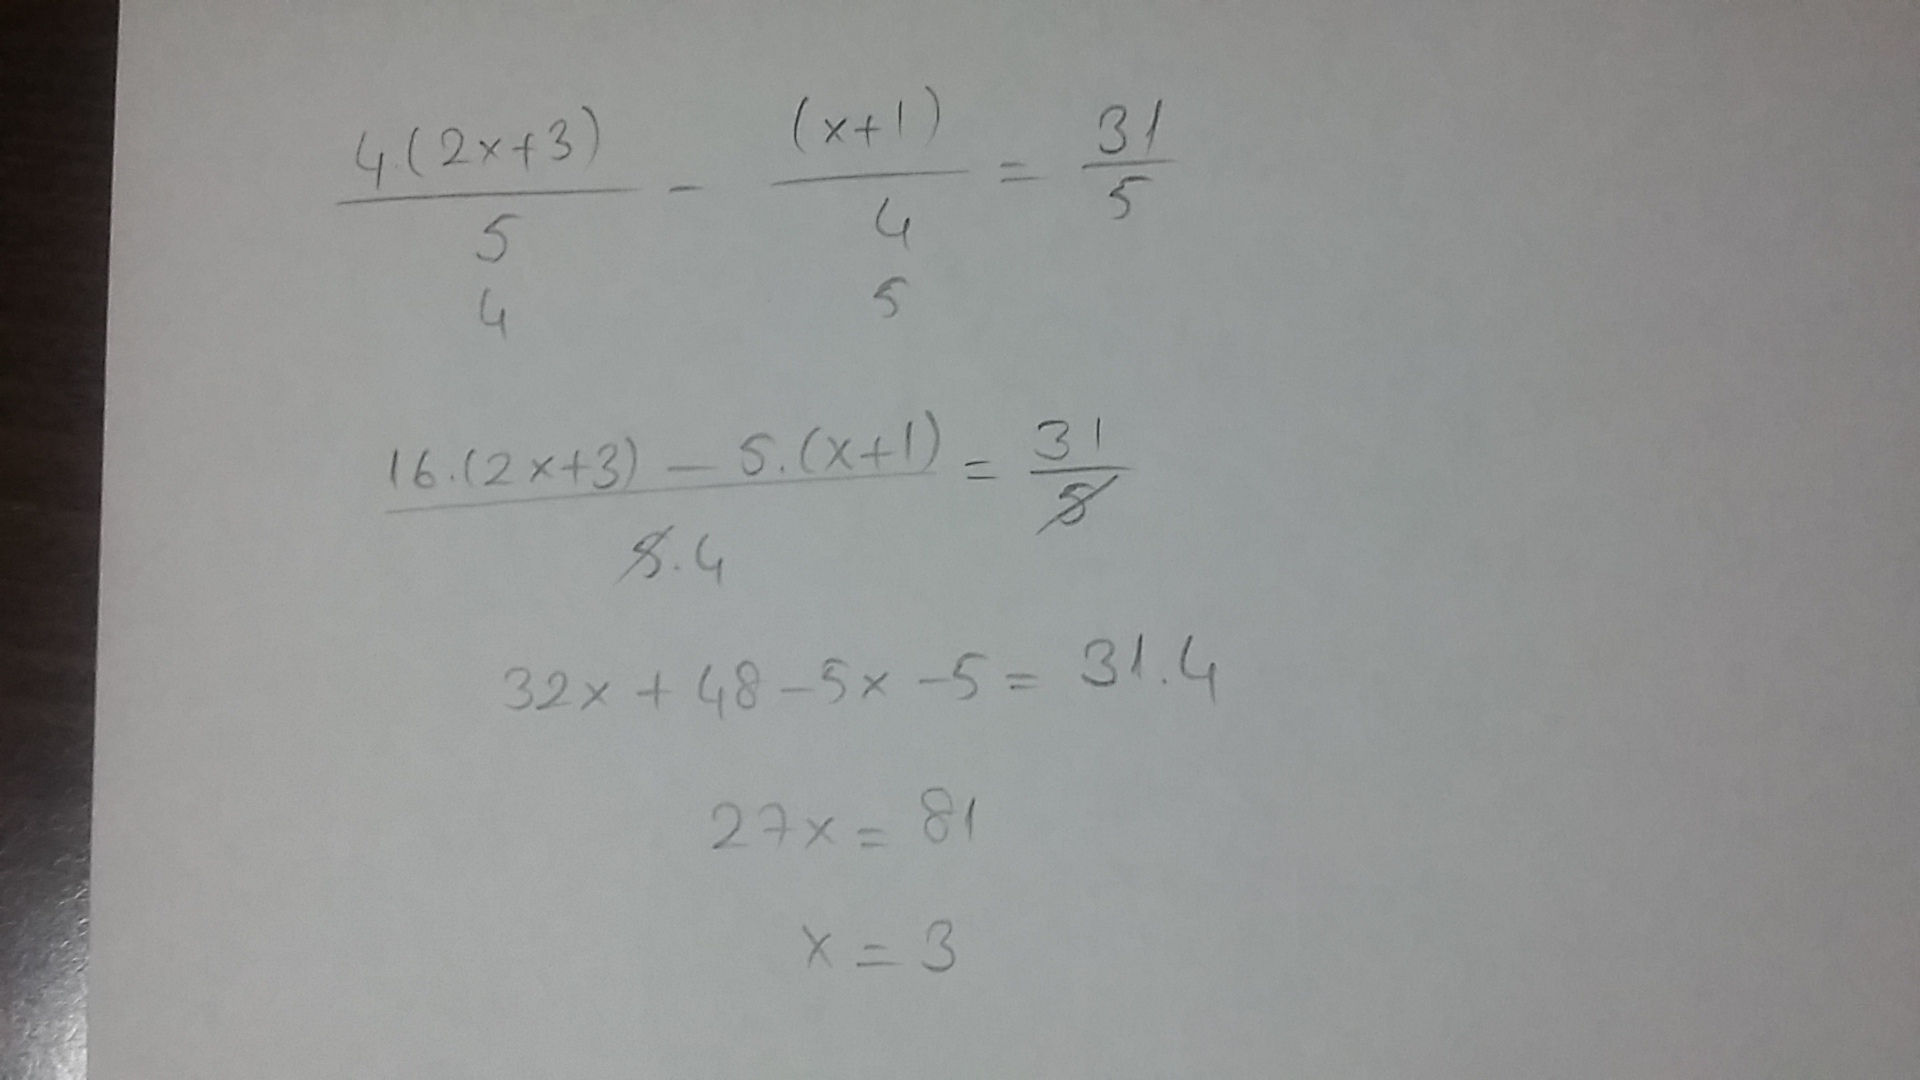 4.(2x+3)/5 - (x+1)/4 = 31/5
4 5
16.(2x+3) - 5.(x+1)/5.4 = 31/5
32x + 48 - 5x - 5 = 31.4
27x = 81
x = 3